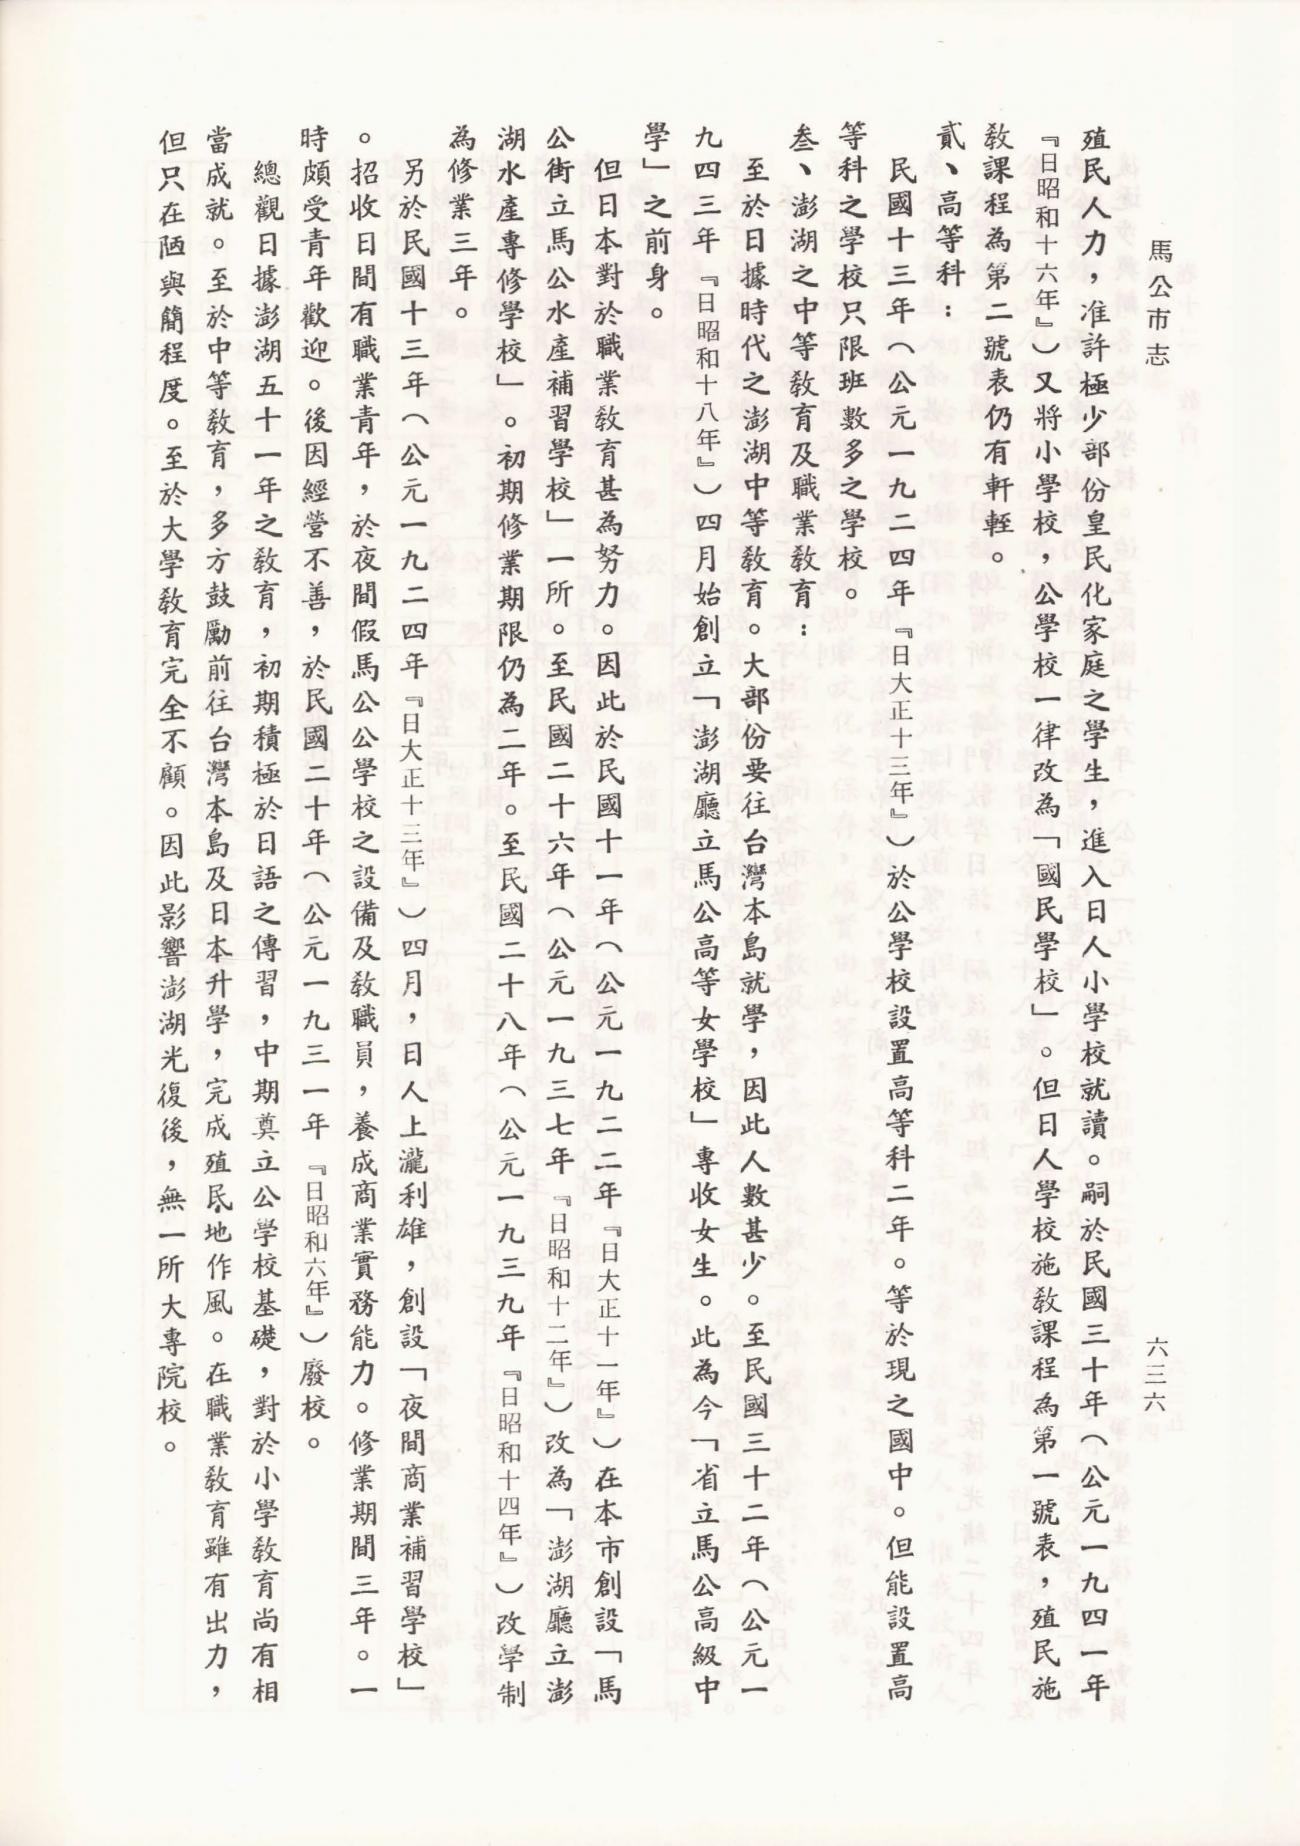 馬公市志
六三六
殖民人力，准許極少部份皇民化家庭之學生，進入日人小學校就讀。嗣於民國三十年（公元一九四一年
『日昭和十六年』）又將小學校，公學校一律改為「國民學校」。但日人學校施敎課程為第一號表，殖民施
敎課程為第二號表仍有軒輊。
貳、高等科：
民國十三年（公元一九二四年『日大正十三年』）於公學校設置高等科二年。等於現之國中。但能設置高
等科之學校只限班數多之學校。
叁、澎湖之中等敎育及職業敎育：
至於日據時代之澎湖中等敎育。大部份要往台灣本島就學，因此人數甚少。至民國三十二年（公元一
九四三年『日昭和十八年』）四月始創立「澎湖廳立馬公高等女學校」專收女生。此為今「省立馬公高級中
學」之前身。
但日本對於職業敎育甚為努力。因此於民國十一年（公元一九二二年『日大正十一年』）在本市創設「馬
公街立馬公水產補習學校」一所。至民國二十六年（公元一九三七年『日昭和十二年』）改為「澎湖廳立澎
湖水產專修學校」。初期修業期限仍為二年。至民國二十八年（公元一九三九年『日昭和十四年』）改學制
為修業三年。
另於民國十三年（公元一九二四年『日大正十三年』）四月，日人上瀧利雄，創設「夜間商業補習學校」
。招收日間有職業青年，於夜間假馬公公學校之設備及敎職員，養成商業實務能力。修業期間三年。一
時頗受青年歡迎。後因經營不善，於民國二十年（公元一九三一年『日昭和六年』）廢校。
總觀日據澎湖五十一年之敎育，初期積極於日語之傳習，中期奠立公學校基礎，對於小學敎育尚有相
當成就。至於中等敎育，多方鼓勵前往台灣本島及日本升學，完成殖民地作風。在職業敎育雖有出力，
但只在陋與簡程度。至於大學敎育完全不顧。因此影響澎湖光復後，無一所大專院校。